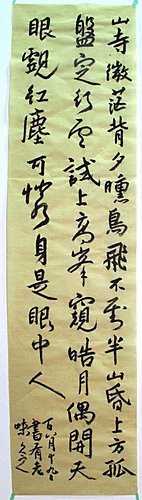 山寺微茫背夕曛鳥飛不到半山昏上方孤
磬定行雲試上高峯窺皓月偶開天
眼覷紅塵可憐身是眼中人
月十九
書有老